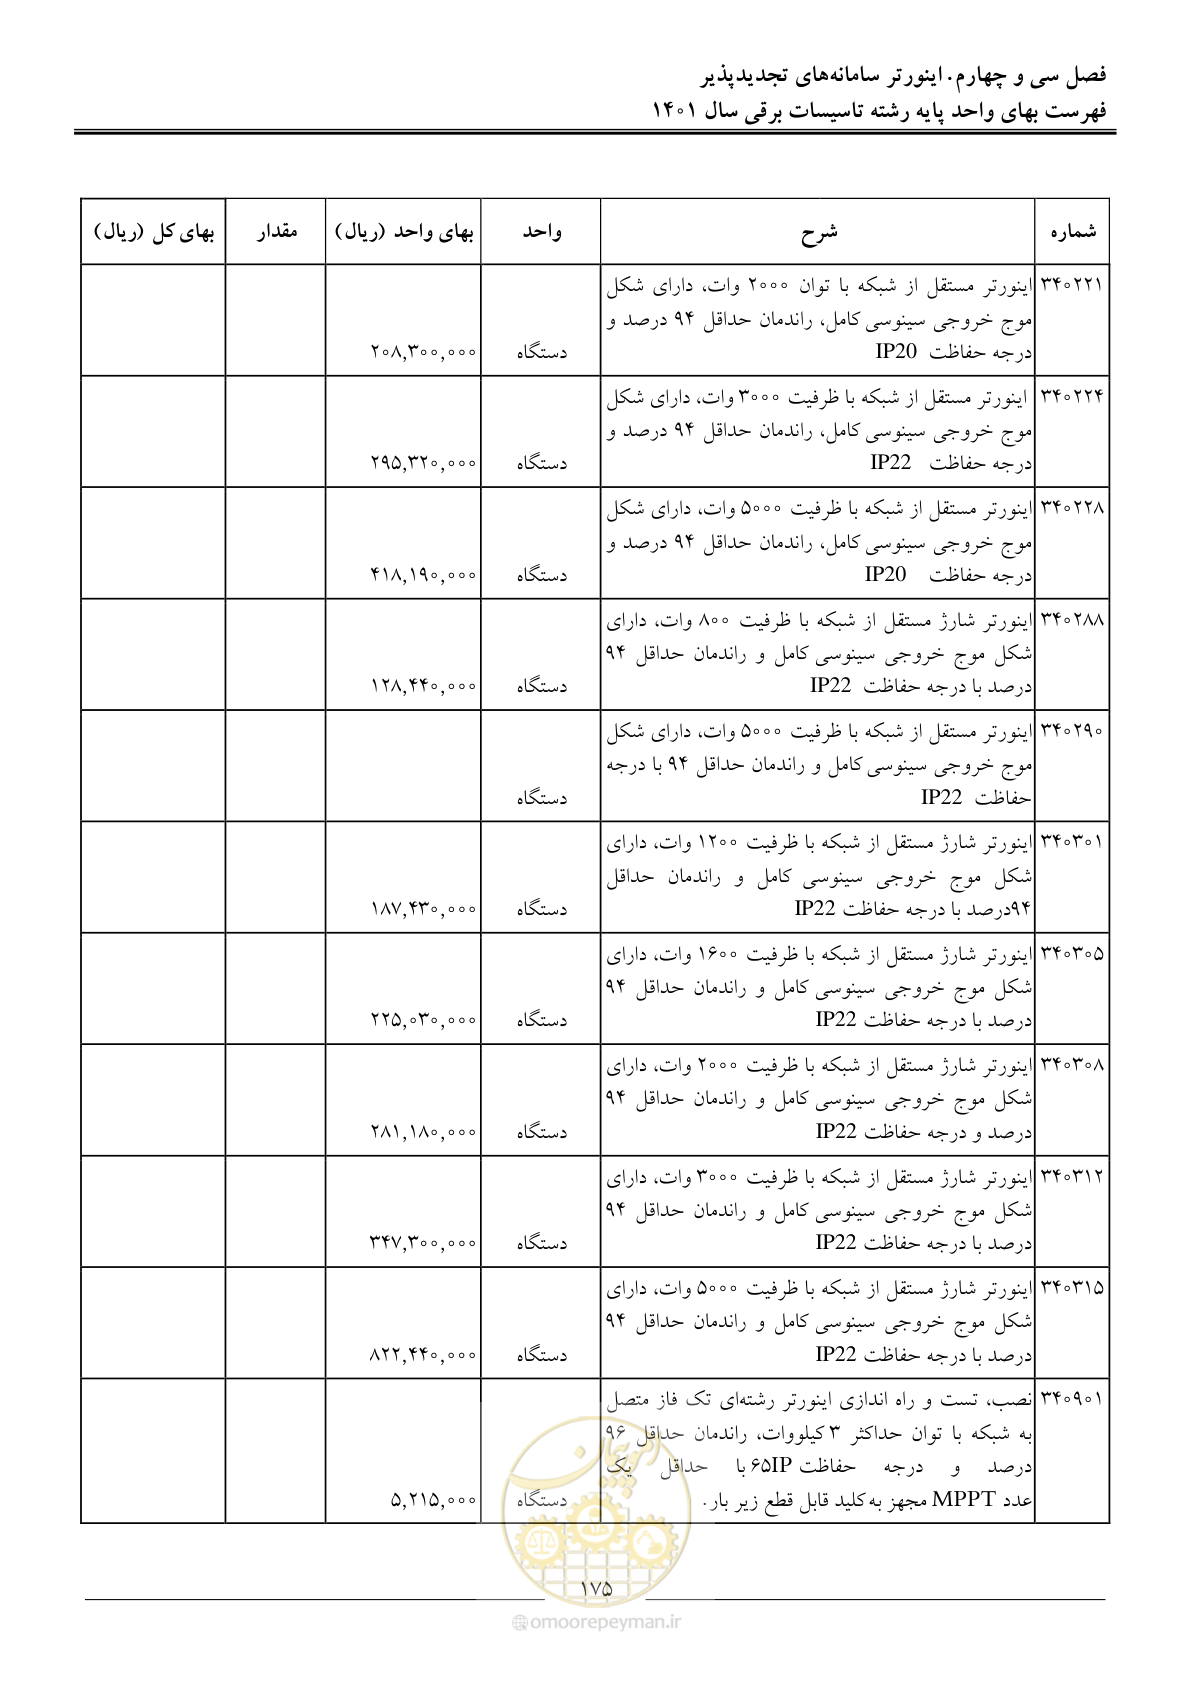 فصل سی و چهارم. اینورتر سامانه‌های تجدیدپذیر
فهرست بهای واحد پایه رشته تاسیسات برقی سال ۱۴۰۱
شماره شرح واحد بهای واحد (ریال) مقدار بهای کل (ریال)
۳۴۰۲۲۱ اینورتر مستقل از شبکه با توان ۲۰۰۰ وات، دارای شکل
موج خروجی سینوسی کامل، راندمان حداقل ۹۴ درصد و
درجه حفاظت IP20 دستگاه ۲۰۸,۳۰۰,۰۰۰
۳۴۰۲۲۴ اینورتر مستقل از شبکه با ظرفیت ۳۰۰۰ وات، دارای شکل
موج خروجی سینوسی کامل، راندمان حداقل ۹۴ درصد و
درجه حفاظت IP22 دستگاه ۲۹۵,۳۲۰,۰۰۰
۳۴۰۲۲۸ اینورتر مستقل از شبکه با ظرفیت ۵۰۰۰ وات، دارای شکل
موج خروجی سینوسی کامل، راندمان حداقل ۹۴ درصد و
درجه حفاظت IP20 دستگاه ۴۱۸,۱۹۰,۰۰۰
۳۴۰۲۸۸ اینورتر شارژ مستقل از شبکه با ظرفیت ۸۰۰ وات، دارای
شکل موج خروجی سینوسی کامل و راندمان حداقل ۹۴
درصد با درجه حفاظت IP22 دستگاه ۱۲۸,۴۴۰,۰۰۰
۳۴۰۲۹۰ اینورتر مستقل از شبکه با ظرفیت ۵۰۰۰ وات، دارای شکل
موج خروجی سینوسی کامل و راندمان حداقل ۹۴ با درجه
حفاظت IP22 دستگاه
۳۴۰۳۰۱ اینورتر شارژ مستقل از شبکه با ظرفیت ۱۲۰۰ وات، دارای
شکل موج خروجی سینوسی کامل و راندمان حداقل
۹۴درصد با درجه حفاظت IP22 دستگاه ۱۸۷,۴۳۰,۰۰۰
۳۴۰۳۰۵ اینورتر شارژ مستقل از شبکه با ظرفیت ۱۶۰۰ وات، دارای
شکل موج خروجی سینوسی کامل و راندمان حداقل ۹۴
درصد با درجه حفاظت IP22 دستگاه ۲۲۵,۰۳۰,۰۰۰
۳۴۰۳۰۸ اینورتر شارژ مستقل از شبکه با ظرفیت ۲۰۰۰ وات، دارای
شکل موج خروجی سینوسی کامل و راندمان حداقل ۹۴
درصد و درجه حفاظت IP22 دستگاه ۲۸۱,۱۸۰,۰۰۰
۳۴۰۳۱۲ اینورتر شارژ مستقل از شبکه با ظرفیت ۳۰۰۰ وات، دارای
شکل موج خروجی سینوسی کامل و راندمان حداقل ۹۴
درصد با درجه حفاظت IP22 دستگاه ۳۴۷,۳۰۰,۰۰۰
۳۴۰۳۱۵ اینورتر شارژ مستقل از شبکه با ظرفیت ۵۰۰۰ وات، دارای
شکل موج خروجی سینوسی کامل و راندمان حداقل ۹۴
درصد با درجه حفاظت IP22 دستگاه ۸۲۲,۴۴۰,۰۰۰
۳۴۰۹۰۱ نصب، تست و راه اندازی اینورتر رشته‌ای تک فاز متصل
به شبکه با توان حداکثر ۳ کیلووات، راندمان حداقل ۹۶
درصد و درجه حفاظت ۶۵IP با حداقل یک
عدد MPPT مجهز به کلید قابل قطع زیر بار. دستگاه ۵,۲۱۵,۰۰۰
امور پیمان
۱۷۵
omoorepeyman.ir